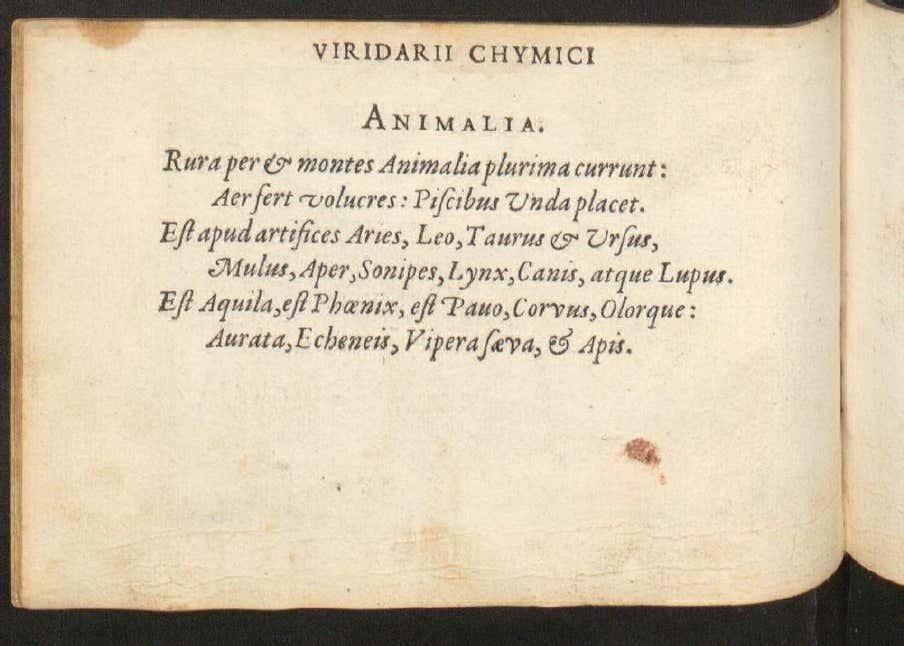 VIRIDARII CHYMICI
ANIMALIA.
Rura per & montes Animalia plurima currunt:
Aer fert volucres: Piſcibus Unda placet.
Eſt apud artifices Aries, Leo, Taurus & Urſus,
Mulus, Aper, Sonipes, Lynx, Canis, atque Lupus.
Eſt Aquila, eſt Phœnix, eſt Pavo, Corvus, Olorque:
Aurata, Echeneis, Vipera ſæva, & Apis.